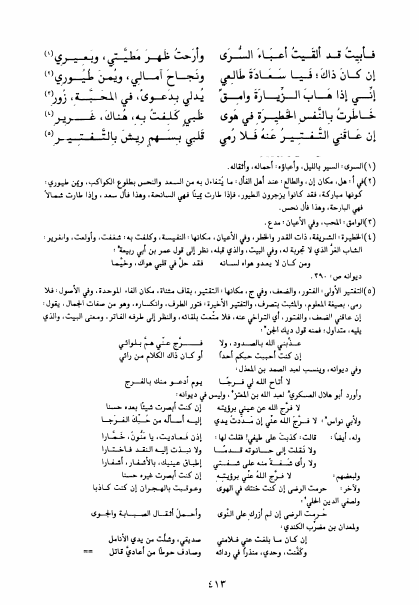 فأبيتُ قد ألقيتُ أعباءَ السُّرى وأرحتُ ظهرَ مطيَّتي، وبعيري(١)
إن كان ذاك؛ فيا سعادةَ طالعي ونجاحَ آمالي، ويُمنَ طيوري(٢)
إنّي إذا هابَ الزيارةَ وامقٌ يُدلي بدعوى، في المحبّة، زور(٣)
خاطرتُ بالنفسِ الخطيرةِ في هوى ظبيٍ كلفتُ به، هناك، غرير(٤)
إن عاقني التفتيرُ عنهُ فلا رمى قلبي بسهمٍ ريشَ بالتفتيرِ(٥)
(١) السرى: السير بالليل، وأعباؤه: أحماله، وأثقاله.
(٢) في أ: هل، مكان إن، والطالع: عند أهل الفأل: ما يُتفاءل به من السعد والنحس بطلوع الكواكب، ويمن طيوري:
كونها مباركة، فقد كانوا يزجرون الطيور، فإذا طارت يميناً فهي السانحة، وهذا فأل سعد، وإذا طارت شمالاً
فهي البارحة، وهذا فأل نحس.
(٣) الوامق: المحب، وفي الأعيان: مدع.
(٤) الخطيرة: الشريفة، ذات القدر والخطر، وفي الأعيان، مكانها: النفيسة، وكلفت به: شغفت، وأولعت، والغرير:
الشاب الغرّ الذي لا تجربة له، وفي البيت، والذي قبله، نظر إلى قول عمر بن أبي ربيعة:
ومن كان لا يعدو هواه لسانه فقد حلّ في قلبي هواك، وخيّما
ديوانه ص: ٣٩٠.
(٥) التفتير الأولى: الفتور، والضعف، وفي ج، مكانها: التقتير، بقاف مثناة، مكان الفاء الموحدة، وفي الأصول: فلا
رمى، بصيغة المعلوم، والمثبت بتصرف، والتفتير الأخيرة: فتور الطرف، وانكساره، وهو من صفات الجمال، يقول:
إن عاقني الضعف، والفتور، أي التراخي عنه، فلا متّعت بلقائه، والنظر إلى طرفه الفاتر، ومعنى البيت، والذي
يليه، متداول؛ فمنه قول ديك الجن:
عذّبني الله بالصدود، ولا فرّج عنّي همّ بلوائي
إن كنت أحببت حبكم أحداً أو كان ذاك الكلام من رائي
وفي ديوانه، وينسب لعبد الصمد بن المعذل:
لا أتاح الله لي فرجاً يوم أدعو منك بالفرج
وأورد أبو هلال العسكري لعبد الله بن المعتز، وليس في ديوانه:
لا فرّج الله عن عيني برؤيته إن كنت أبصرت شيئاً بعده حسنا
ولأبي نواس: لا فرّج الله عنّي إن مددت يدي إليه أسأله من حبّك الفرجا
وله، أيضاً: قالت: كذبتَ على طيفي! فقلت لها: إذن فعاديت، يا مَنون، خمّارا
ولا نقلت إلى حانوته قدمًا ولا نبذت إليه النقد فاختارا
ولا رأى شفةً منه على شفتي إطباق عينيك، بالأشفار، أشفارا
ولبعضهم: لا فرّج الله عنّي برؤيته إن كنت أبصرت غيره حسنا
ولآخر: حرمت الرضى إن كنت خنتك في الهوى وعوقبت بالهجران إن كنت كاذبا
ولصفي الدين الحلي:
حُرمت الرضى إن لم أزرك على النّوى وأحمل أثقال الصبابة والجوى
ولمعدان بن مضرّب الكندي:
إن كان ما بلّغت عني فلامني صديقي، وشلّت من يديّ الأنامل
وكفّنت، وحدي، منذراً في ردائه وصادف حوطاً من أعاديّ قاتل ==
٤١٣